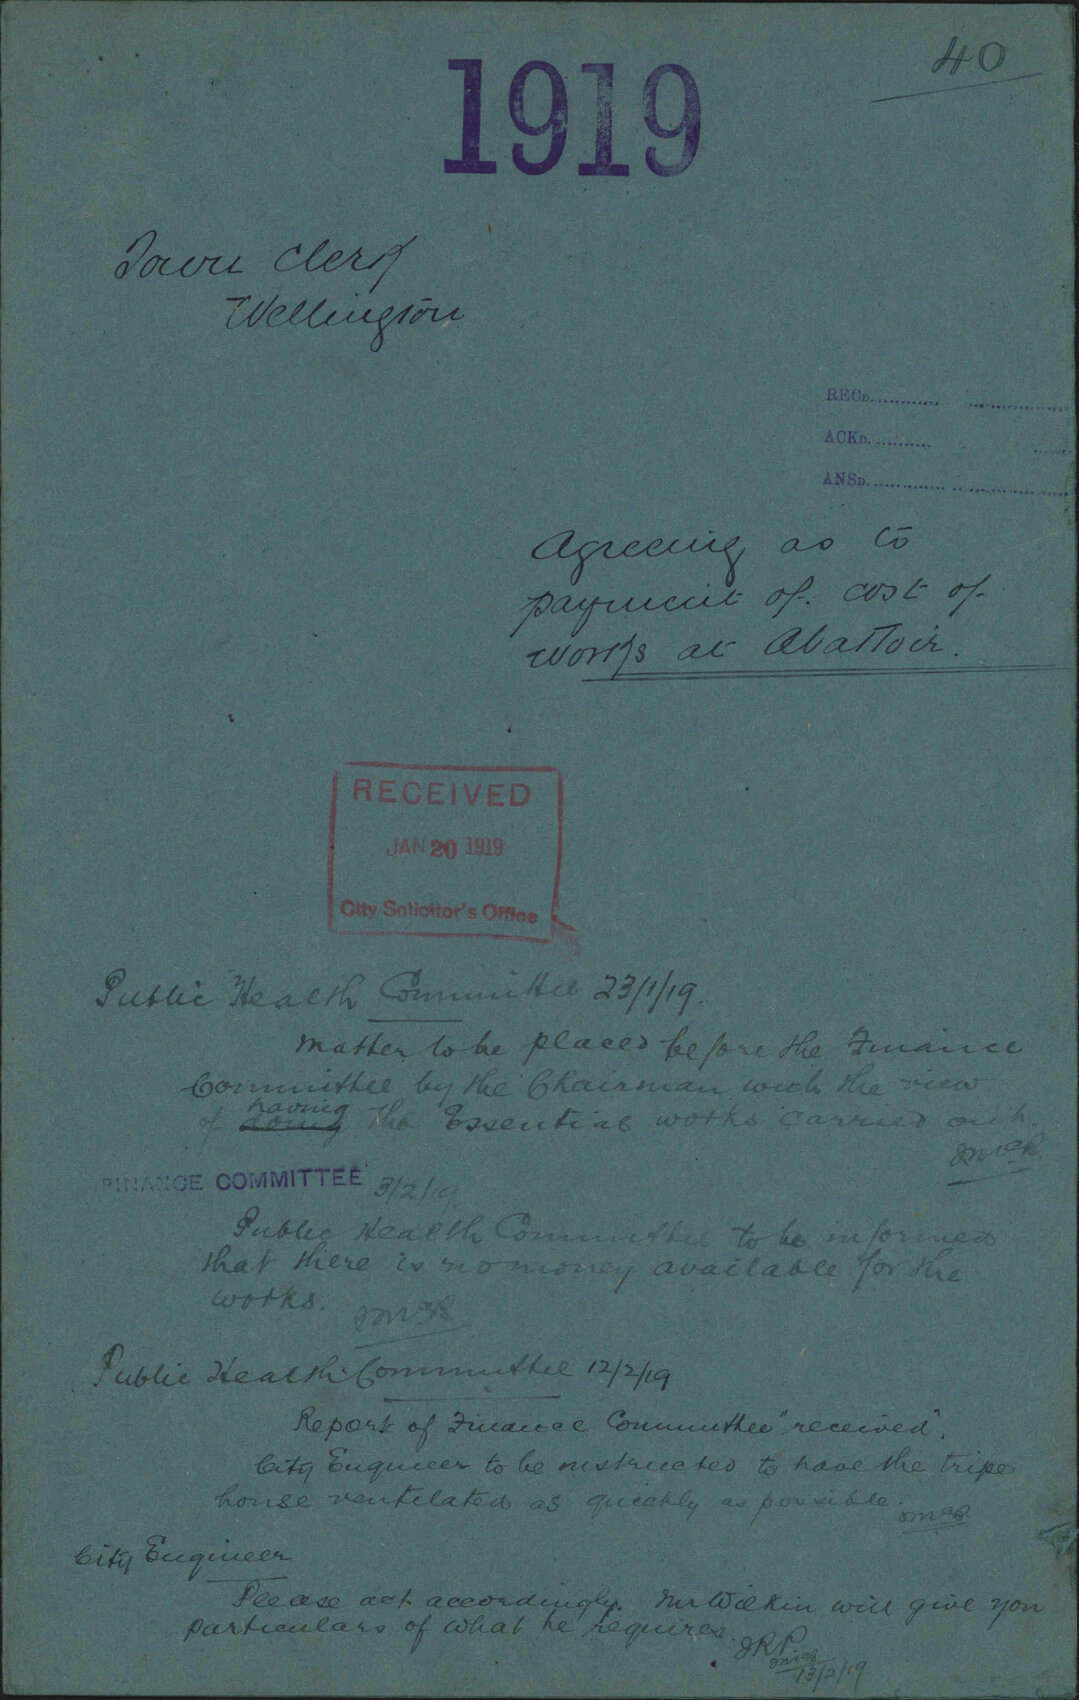 40
1919
Town Clerk
Wellington
RECD.
ACKD.
ANSD.
Agreeing as to
payment of cost of
works at Abattoir.
RECEIVED
JAN 20 1919
City Solicitor's Office
Public Health Committee 23/1/19.
Matter to be placed before the Finance
Committee by the Chairman with the view
having
of the Essential works carried out.
FINANCE COMMITTEE 3/2/19
Public Health Committee to be informed
that there is no money available for the
works.
Public Health Committee 12/2/19
Report of Finance Committee "received".
City Engineer to be instructed to have the tripe
house ventilated as quickly as possible.
City Engineer
Please act accordingly. Mr Wilkin will give you
particulars of what he requires.
JRP
13/2/19